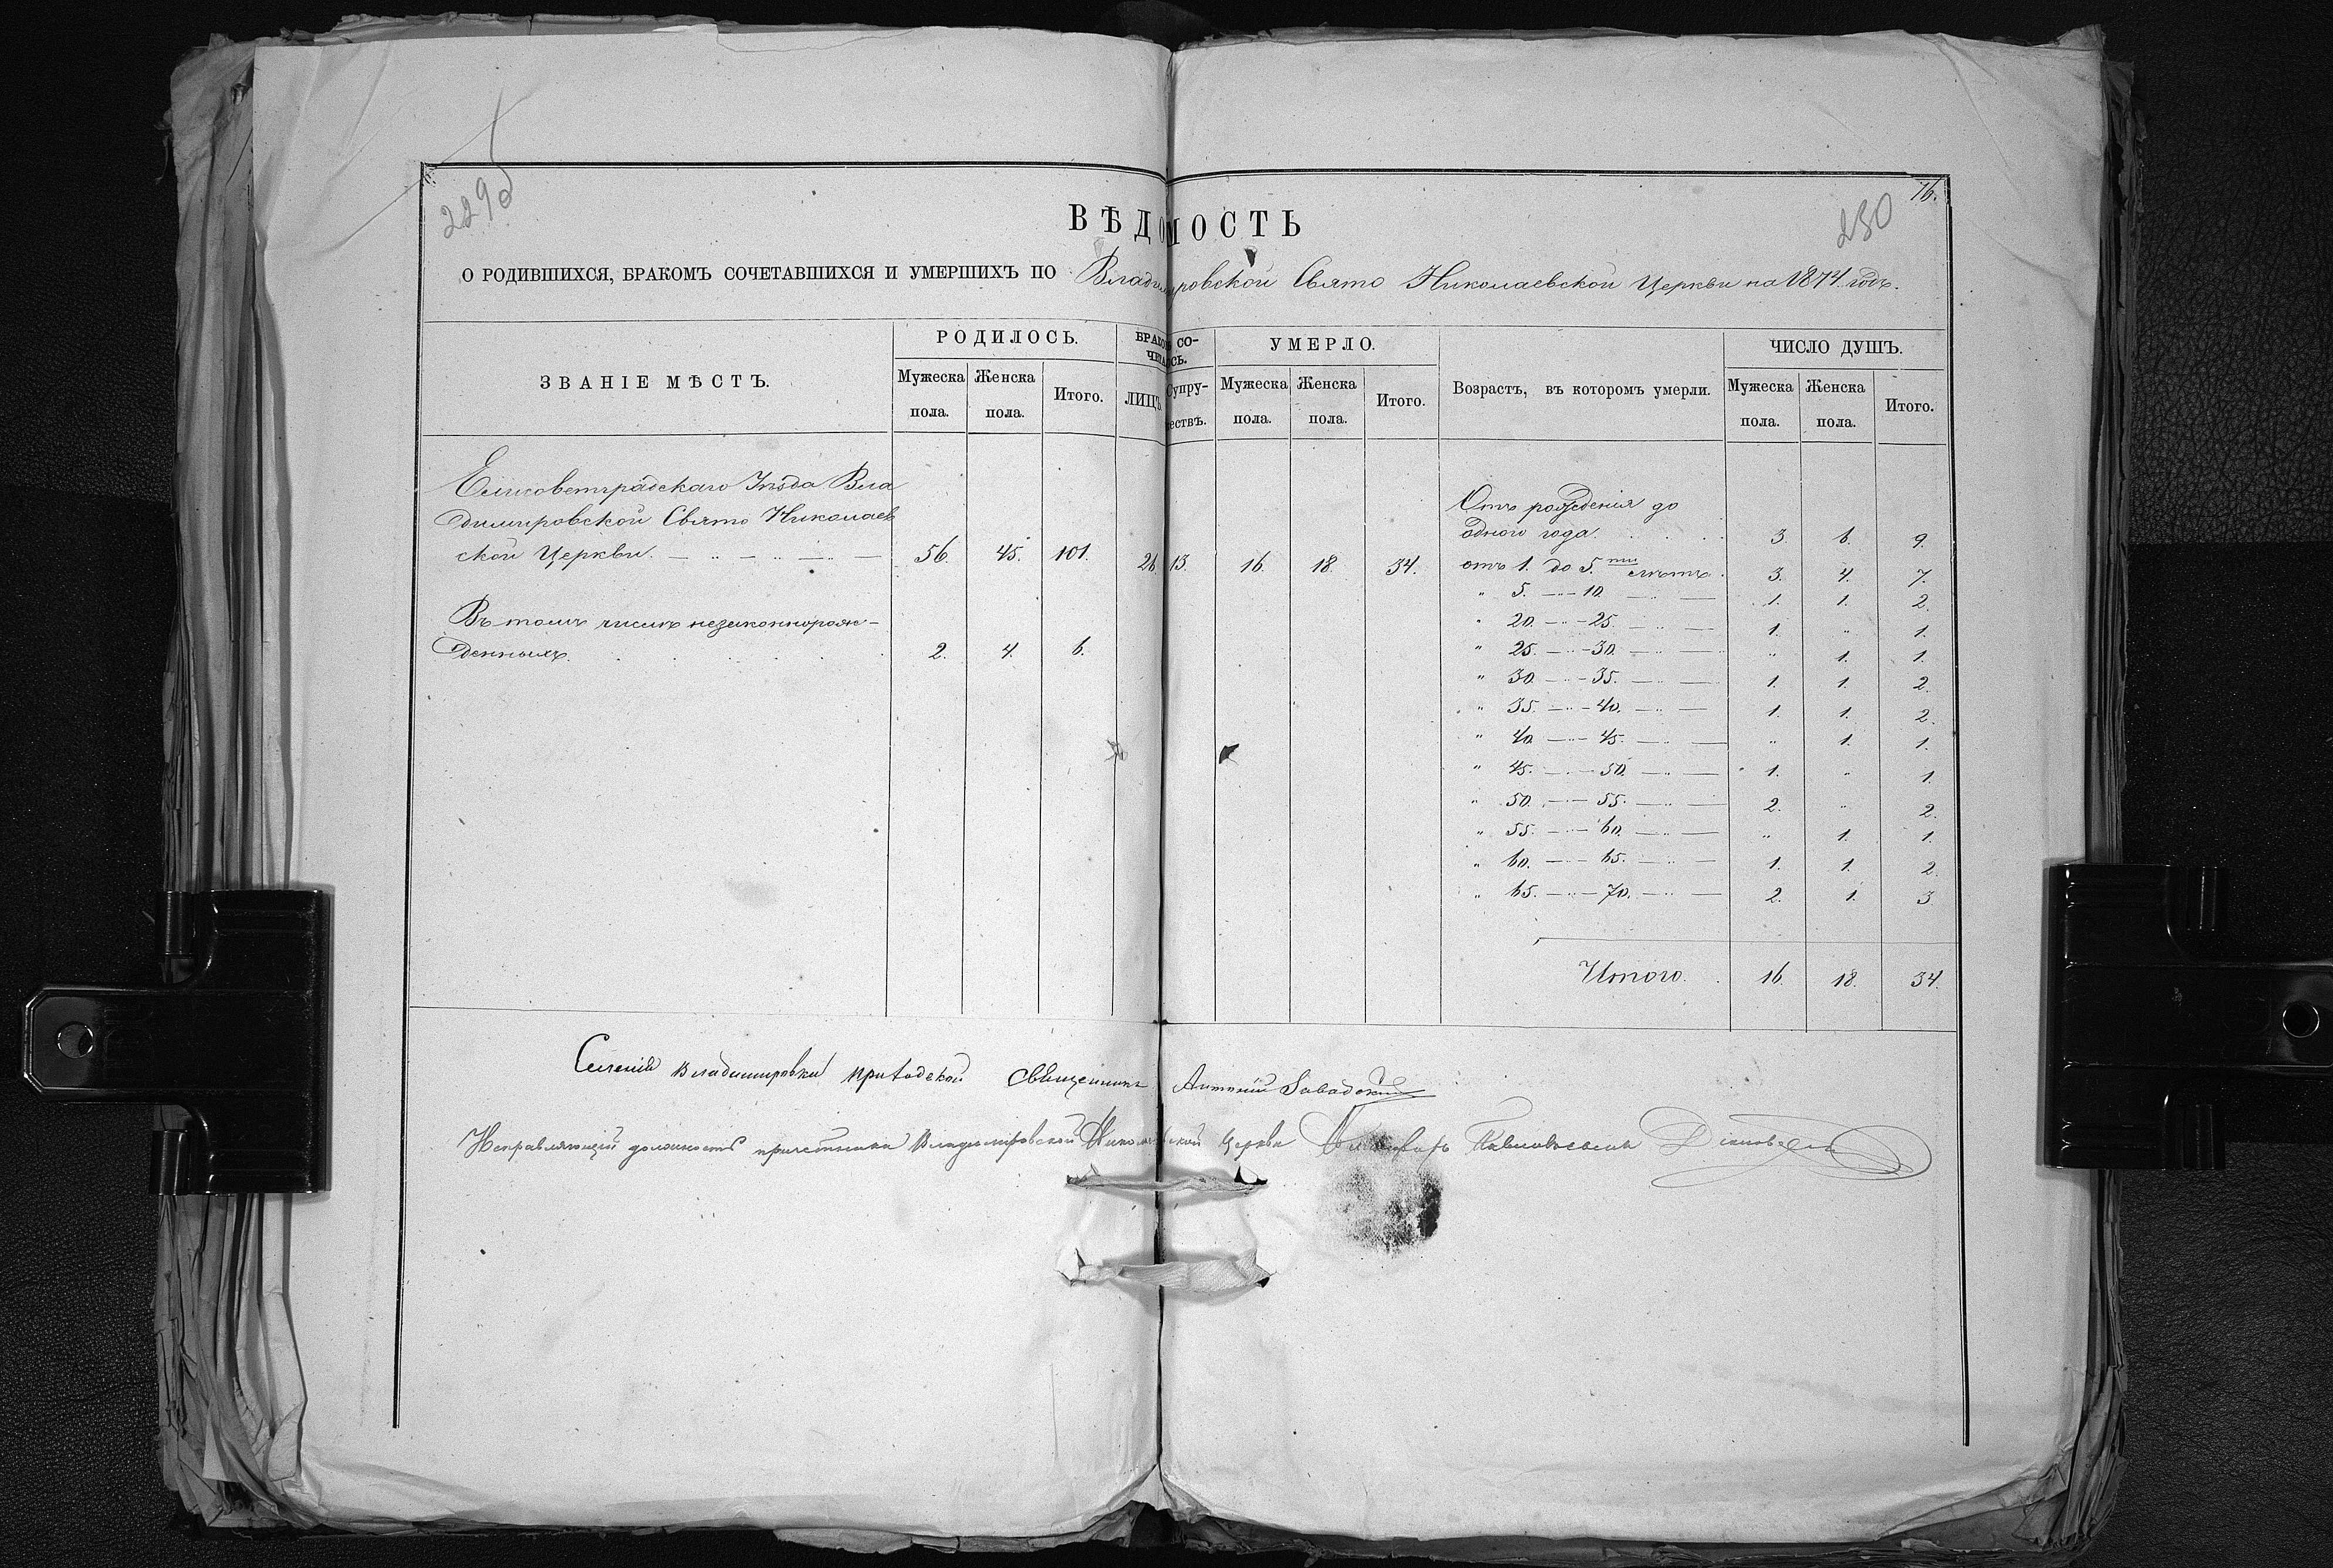 229д
16.
230
ВѢДОМОСТЬ
О РОДИВШИХСЯ, БРАКОМЪ СОЧЕТАВШИХСЯ И УМЕРШИХЪ ПО Владимировской Свято Николаевской Церкви на 1874. годъ.
ЗВАНІЕ МѢСТЪ. РОДИЛОСЬ. БРАКОМЪ СО- УМЕРЛО. Возрастъ, въ которомъ умерли. ЧИСЛО ДУШЪ.
ЧЕТАЛОСЬ.
Мужеска Женска Итого. ЛИЦЪ Супру- Мужеска Женска Итого. Мужеска Женска Итого.
пола. пола. жествъ. пола. пола. пола. пола.
Елисоветградскаго Уѣзда Вла
димировской Свято Николаев
ской Церкви. 56. 45. 101. 26. 13. 16. 18. 34.
Въ томъ числѣ незаконнорож-
денныхъ. 2. 4. 6.
Отъ рожденія до
одного года. 3 6. 9.
отъ 1. до 5. ти лѣтъ. 3. 4. 7.
" 5. — 10. — 1. 1. 2.
" 20. — 25. — 1. " 1.
" 25. — 30. — " 1. 1.
" 30. — 35. — 1. 1. 2.
" 35. — 40. — 1. 1. 2.
" 40. — 45. — " 1. 1.
" 45. — 50. — 1. " 1.
" 50. — 55. — 2. " 2.
" 55. — 60. — " 1. 1.
" 60. — 65. — 1. 1. 2.
" 65. — 70. — 2. 1. 3.
Итого. 16. 18. 34.
Селенія Владимировки приходской священникъ Антоній Завадскій
Исправляющій должность причетника Владиміровской Николаевской Церкви